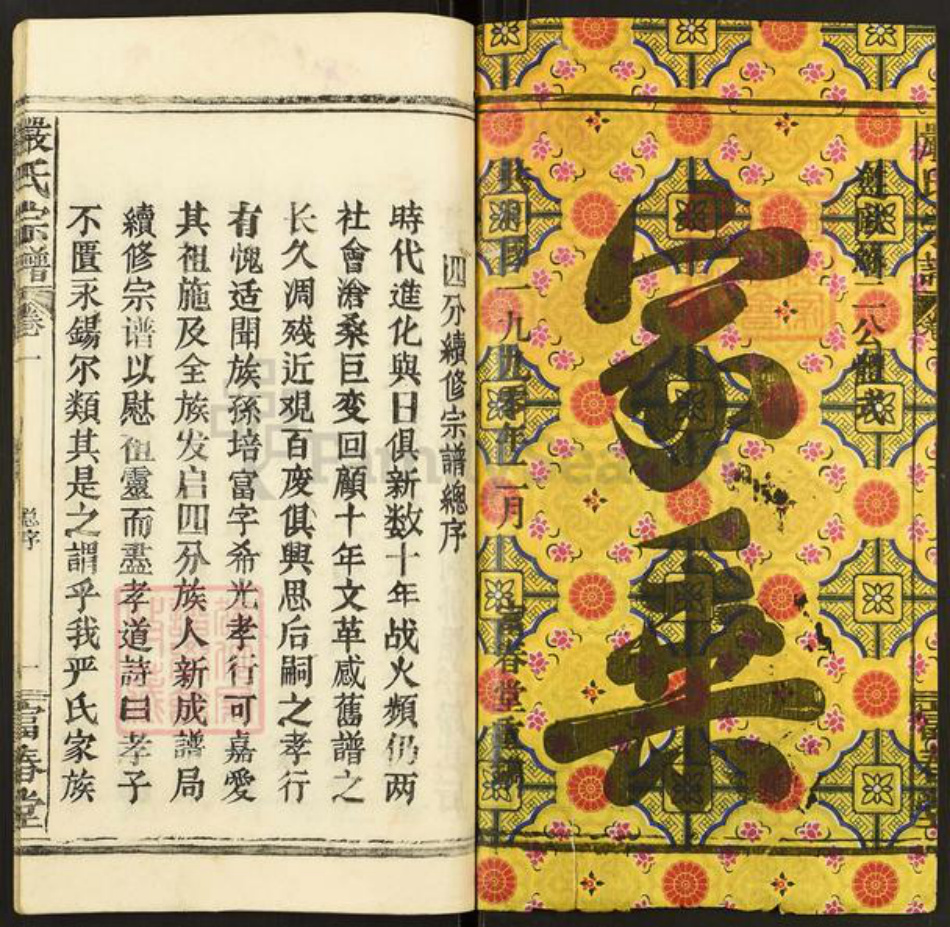 家乘
公體式
民國一九九零年二月
富春堂
四分續修宗譜總序
時代進化與日俱新数十年战火頻仍两
社會滄桑巨变回顧十年文革感舊譜之
长久凋残近观百废俱興思后嗣之孝行
有愧适聞族孫培富字希光孝行可嘉愛
其祖施及全族发启四分族人新成譜局
續修宗谱以慰祖靈而盡孝道詩曰孝子
不匱永錫尔類其是之謂乎我严氏家族
嚴氏宗譜
卷一
总序
一
富春堂